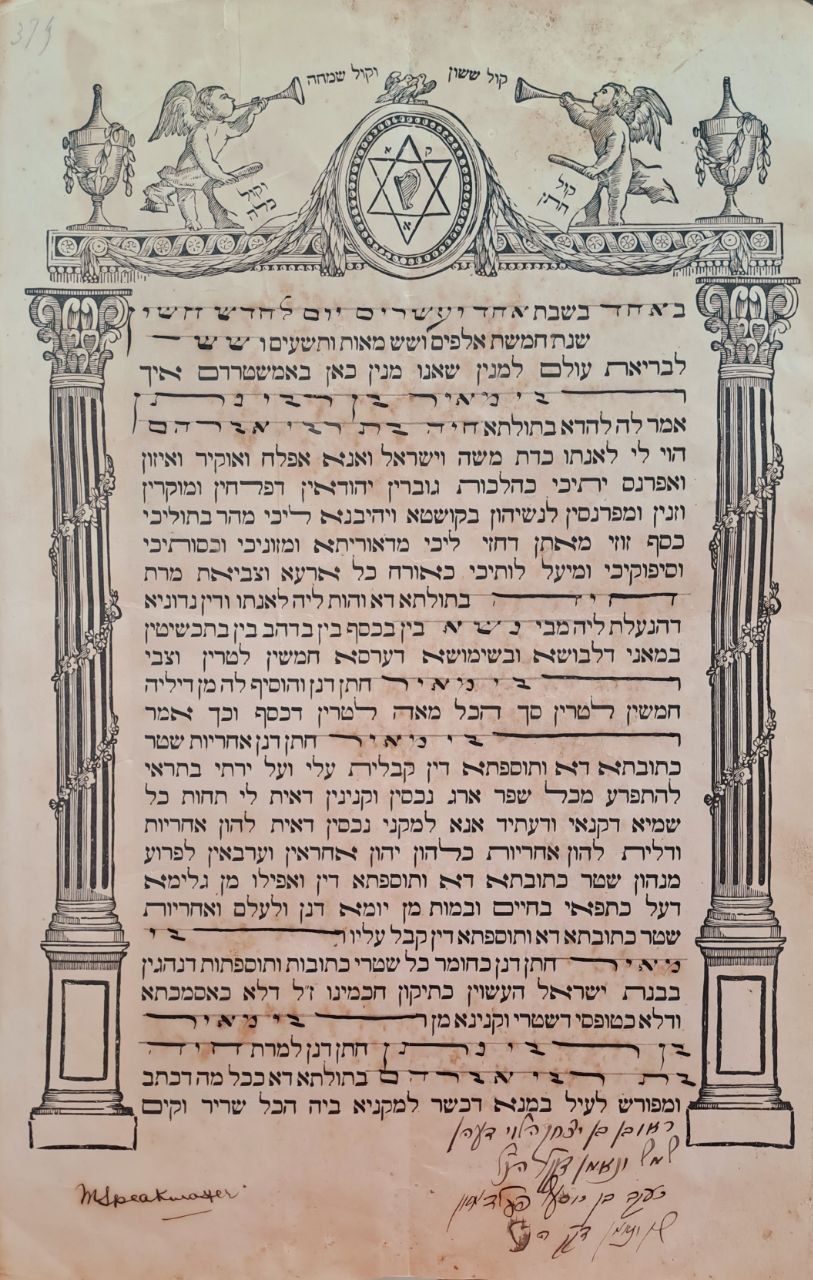 374
קול ששון וקול שמחה
ק
א
א
קול
חתן
וקול
כלה
באחד בשבת אחד ועשרים יום לחדש חשון
שנת חמשת אלפים ושש מאות ותשעים ושש
לבריאת עולם למנין שאנו מנין כאן באמשטרדם איך
ר בי מאיר בן רבי נתן
אמר לה להדא בתולתא חיה בת רבי אברהם
הוי לי לאנתו כדת משה וישראל ואנא אפלח ואוקיר ואיזון
ואפרנס יתיכי כהלכות גוברין יהודאין דפלחין ומוקרין
וזנין ומפרנסין לנשיהון בקושטא ויהיבנא ליכי מהר בתוליכי
כסף זוזי מאתן דחזי ליכי מדאוריתא ומזוניכי וכסותיכי
וסיפוקיכי ומיעל לותיכי כאורח כל ארעא וצביאת מרת
חיה בתולתא דא והות ליה לאנתו ודין נדוניא
דהנעלת ליה מבי נשא בין בכסף בין בדהב בין בתכשיטין
במאני דלבושא ובשימושא דערסא חמשין לטרין וצבי
ר בי מאיר חתן דנן והוסיף לה מן דיליה
חמשין לטרין סך הכל מאה לטרין דכסף וכך אמר
ר בי מאיר חתן דנן אחריות שטר
כתובתא דא ותוספתא דין קבלית עלי ועל ירתי בתראי
להתפרע מכל שפר ארג נכסין וקנינין דאית לי תחות כל
שמיא דקנאי ודעתיד אנא למקני נכסין דאית להון אחריות
ודלית להון אחריות כלהון יהון אחראין וערבאין לפרוע
מנהון שטר כתובתא דא ותוספתא דין ואפילו מן גלימא
דעל כתפאי בחיים ובמות מן יומא דנן ולעלם ואחריות
שטר כתובתא דא ותוספתא דין קבל עליו ר בי
מאיר חתן דנן כחומר כל שטרי כתובות ותוספתות דנהגין
בבנת ישראל העשוין כתיקון חכמינו ז״ל דלא כאסמכתא
ודלא כטופסי דשטרי וקנינא מן ר בי מאיר
בן ר בי נתן חתן דנן למרת חיה
בת רבי אברהם בתולתא דא בכל מה דכתב
ומפורש לעיל במנא דכשר למקניא ביה הכל שריר וקים
ראובן בן יצחק הלוי דעהן
שמש ונאמן דקק הנ״ל
יעקב בן יוסף
שמש ונאמן דקק הנ״ל
M Speakmaster